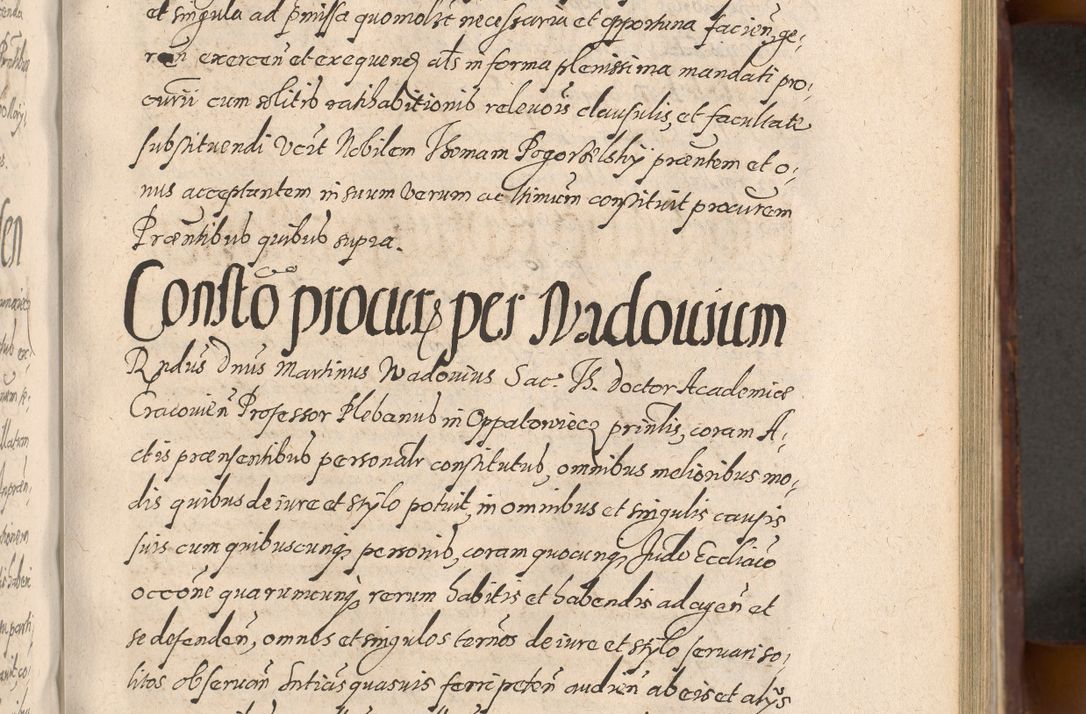 et singula ad pmissa quomolt necessaria et opportuna facien, ge-
ren exercen et exequend als in forma plenissima mandati pro-
curii cum solitis ratihabitionis relevois clausulis, et facultate
substituendi Vcit Nobilem Thomam Pogorselshy prntem et o-
nus acceptantem in suum verum ac ltimum constituit procurem
Prntibus quibus supra.
Consto procur per Wadouium
Rndus Dnus Martinus Wadouius Sac. Th. doctor Academiæ
Cracouien Professor Plebanus in Oppatowiecz prinlis, coram A-
ctis præsentibus personalr constitutus, omnibus melioribus mo-
dis quibus de iure et stylo potuit, in omnibus et singulis causis
suis cum quibuscunq personis, coram quocunq Judo Eccliaco
occone quarumcunq rerum habitis et habendis ad agen et
se defenden, omnes et singulos ternos de iure et stylo servari so-
litos observan Sntias quasuis ferri peten audien ab eis et alys